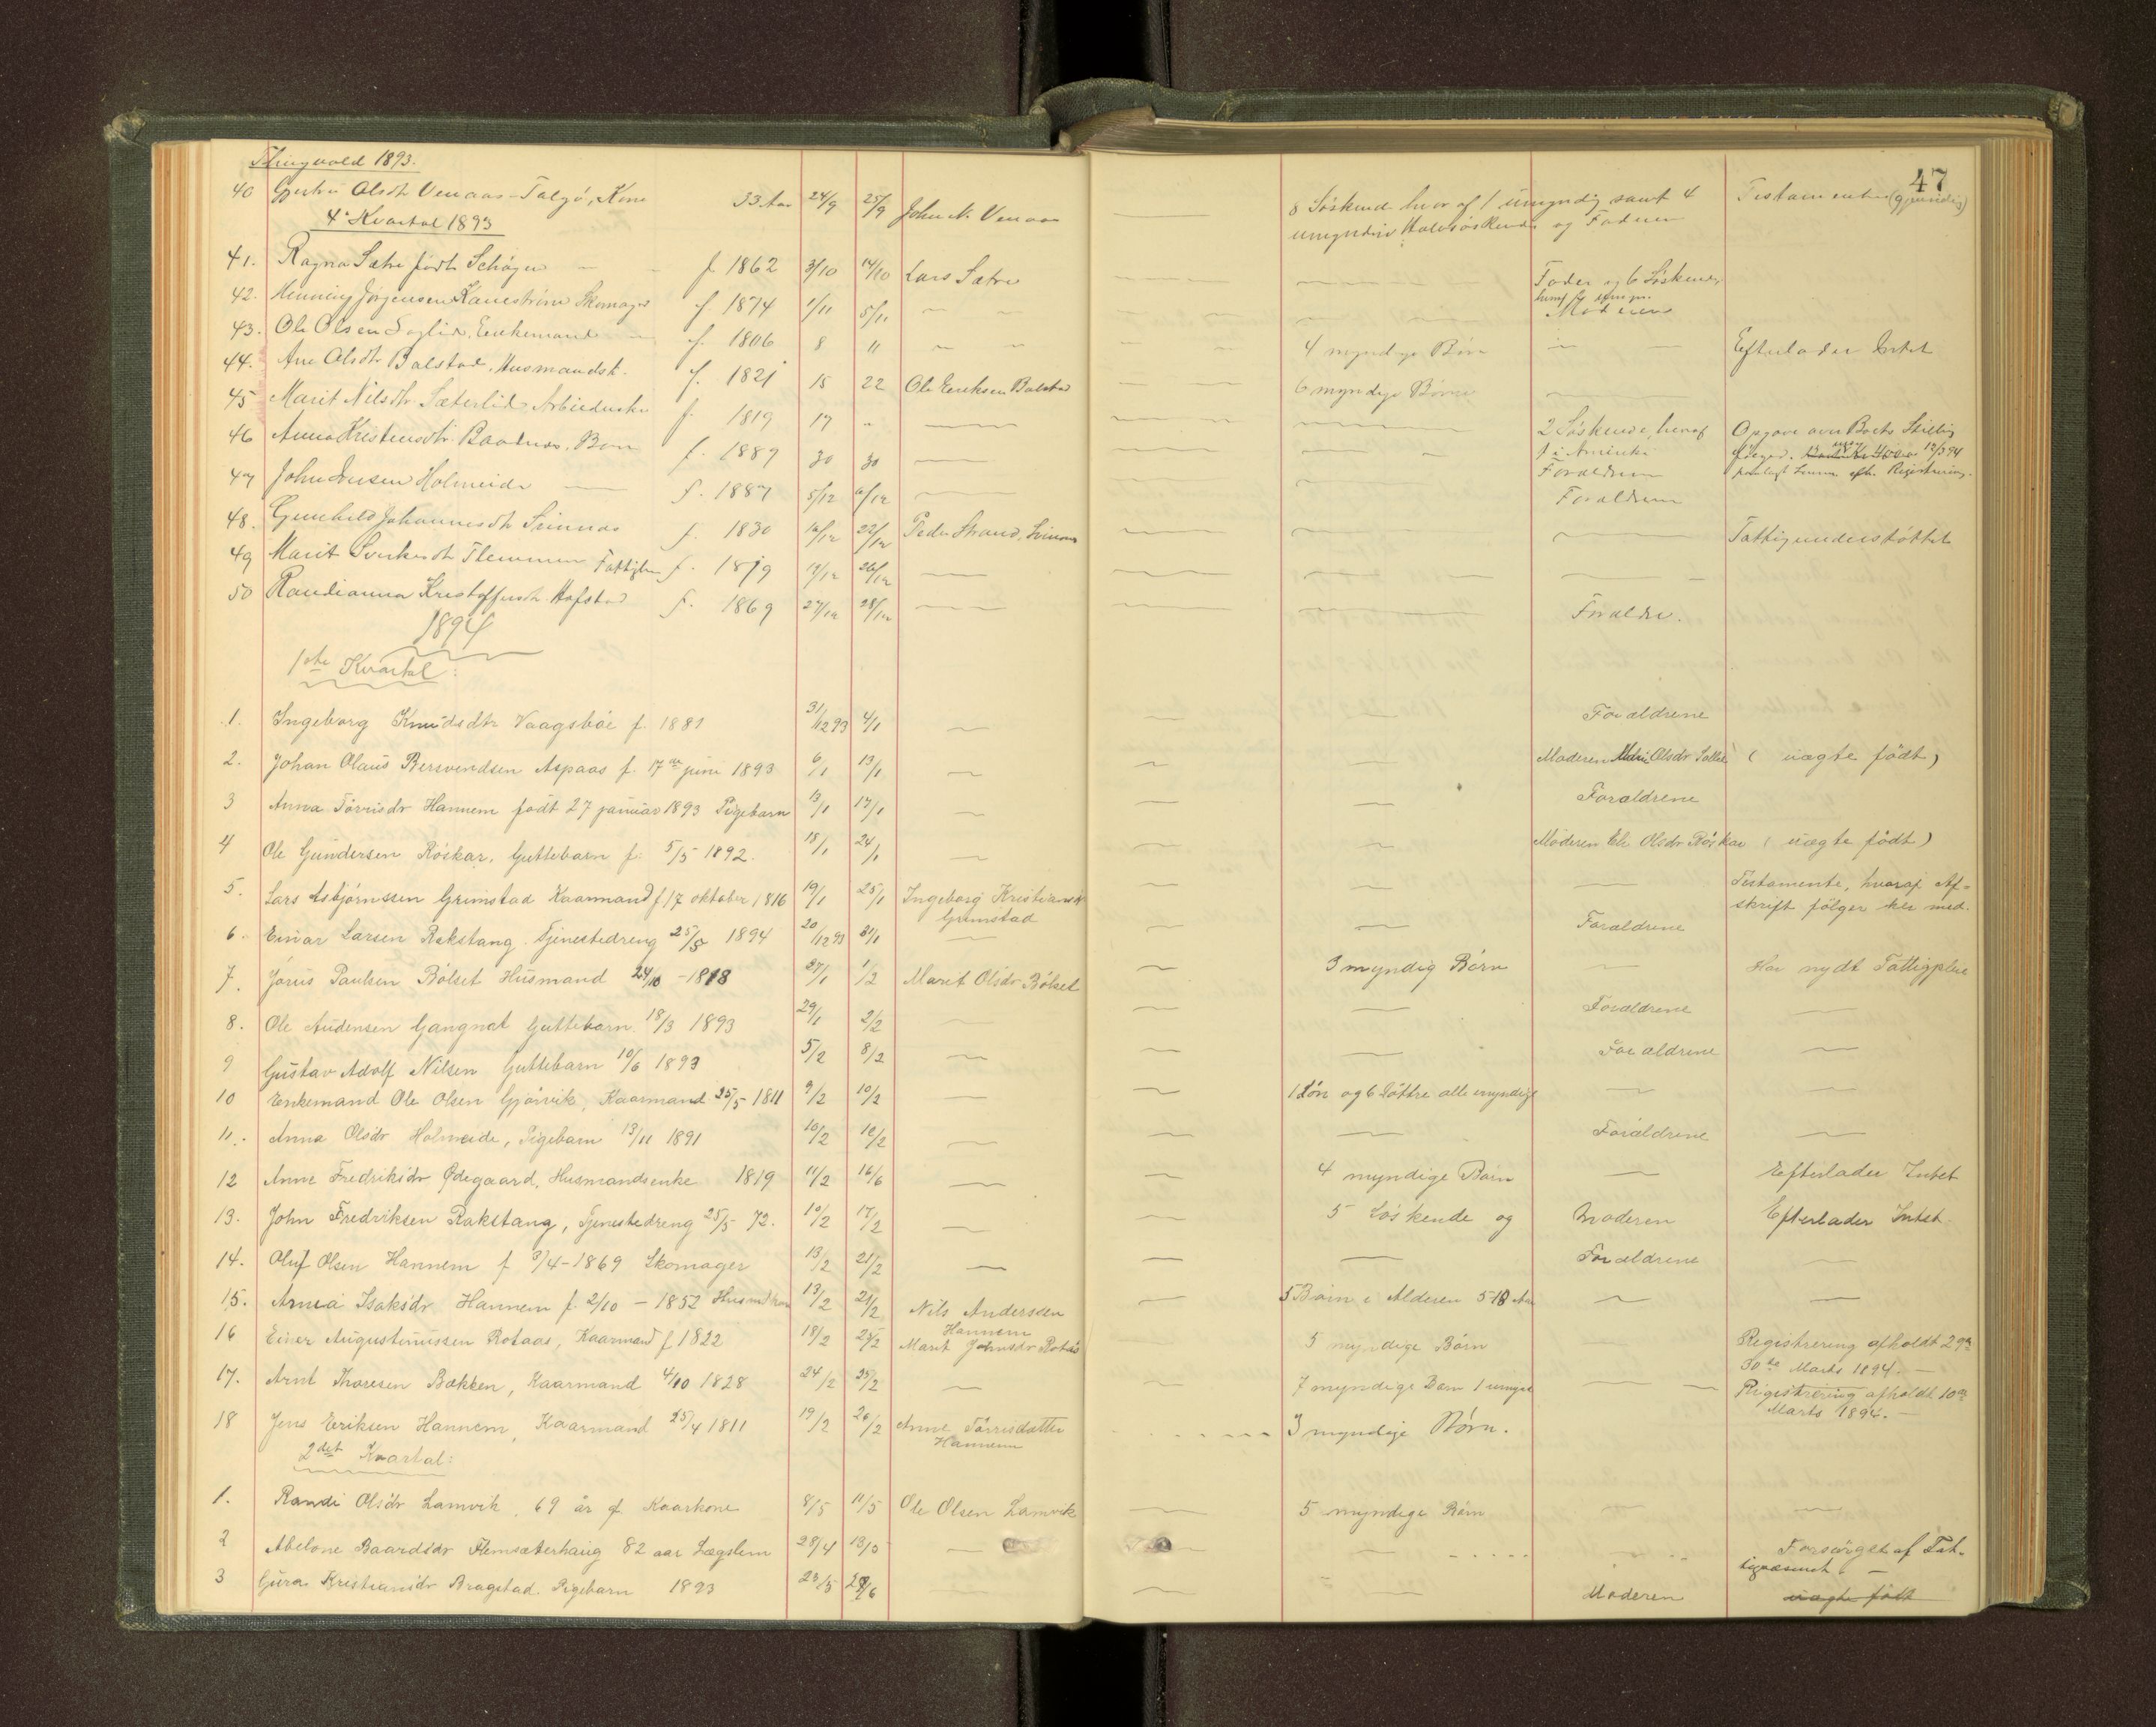 Thingvold 1893.
47
40 Olsdtr Venaas-Talgö, Kone 33 Aar 24/9 25/9 John N. Venaas 8 Söskende hvoraf 1 umyndig samt 4 Testamente
umyndige Halvsöskende og Faderen
4de Kvartal 1893
41. Ragna Sætre födt Schöyen f. 1862 3/10 14/10 Lars Sætre Fader og 6 Söskende
42. Henning Jörgensen Kaneström Skomager f. 1874 1/11 5/11 Moderen
43. Ole Olsen Enkemand f. 1806 8 11 4 myndige Börn Efterlader Intet
44. Ane Olsdtr Bolstad, Husmandsk. f. 1821 15 22 Ole Eriksen Bolstad 6 myndige Börn
45 Marit Nilsdtr Sæterlid, f. 1819 17 " 2 Söskende, heraf Opgave over Boets Stilling
1 i Amerika
46 Anna Kristensdtr. Baadnes, Barn f. 1889 30 30 Forældrene
47 John Jensen Holmeide f. 1887 5/12 6/12 Forældrene
48. Gunhild Johannesdtr Svinnas f. 1830 16/12 22/12 Peder Strand, Svinnas Fattigunderstöttet
49 Marit Sverkesdtr Flemmen Fattiglem f. 1819 19/12 26/12
50 Randianna Kristoffersdtr. Hafstad f. 1869 27/12 28/12 Forældre.
1894
1ste Kvartal:
1. Ingeborg Knudsdtr Vaagsböe f. 1881 31/12 93 4/1 Forældrene
2. Johan Olaus Bersvendsen Aspaas f. 17de juni 1893 6/1 13/1 Moderen Olsdr ( uægte födt)
3 Anna Törrisdr Hannem födt 27 januar 1893 Pigebarn 13/1 17/1 Forældrene
4 Ole Gundersen Röskar, Guttebarn f. 5/5 1892. 18/1 24/1 Moderen Eli Olsdr Röskar ( uægte födt)
5. Lars Asbjörnssen Grimstad Kaarmand f 17 oktober 1816 19/1 25/1 Ingeborg Kristiansdr Testamente, hvoraf Af=
Grimstad skrift fölger her med.
6. Einar Larsen Rakstang. Tjenestedreng 25/5 1894 20/12 93 31/1 Forældrene
7. Jörus Paulsen Bölset Husmand 24/10 - 1818 27/1 1/2 Marit Olsdr Bölset 3 myndig Börn Har nydt Fattigpleie
8. Ole Audensen Gangnat Guttebarn. 18/3 1893 29/1 2/2 Forældrene
9 Gustav Adolf Nilsen Guttebarn 10/6 1893 5/2 8/2 Forældrene
10 Enkemand Ole Olsen Gjörvik, Kaarmand 25/5 1811 9/2 10/2 1 Sön og 6 Döttre alle myndige
11. Anna Olsdr Holmeide, Pigebarn 13/11 1891 10/2 10/2 Forældrene
12 Anne Fredriksdr Ödegaard, Husmandsenke 1819 11/2 16/6 4 myndige Börn Efterlader Intet
13. John Fredriksen Rakstang, Tjenestedreng 25/5 72. 10/2 17/2 5 Söskende og Moderen Efterlader Intet
14. Oluf Olsen Hannem f 3/4-1869 Skomager 13/2 21/2 Forældrene
15. Anna Isaksdr Hannem f. 2/10 - 1852 13/2 21/2 Nils Anderssen 5 Börn i Alderen 5-18 Aar
Hannem
16 Einer Augustinussen Rotaas, Kaarmand f 1822 18/2 25/2 Marit Johnsdr Rotås 5 myndige Börn Registrering afholdt 29de
30te Marts 1894.
17. Arnt Thoresen Bakken, Kaarmand 4/10 1828 24/2 25/2 7 myndige Barn 1 umynd Registrering afholdt 10de
Marts 1894.
18 Jens Eriksen Hannem, Kaarmand 25/4 1811 19/2 26/2 Anne Törrisdatter 3 myndige Börn.
Hannem
2det Kvartal:
1. Randi Olsdr Lamvik, 69 år gl. Kaarkone 8/5 11/5 Ole Olsen Lamvik 5 myndige Börn
2 Abelone Baardsdr Flemsæterhaug 82 aar Lægslem 28/4 13/5 Forsörget af Fat-
tigvæsenet
3 Gura Kristiansdr Bragstad. Pigebarn 1893 23/5 28/6 Moderen uægte födt